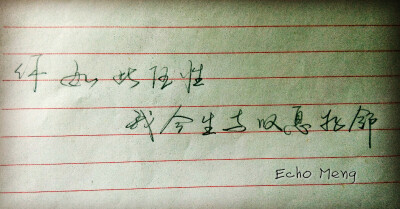 如此任性
我今生与叹息邻
Echo Meng